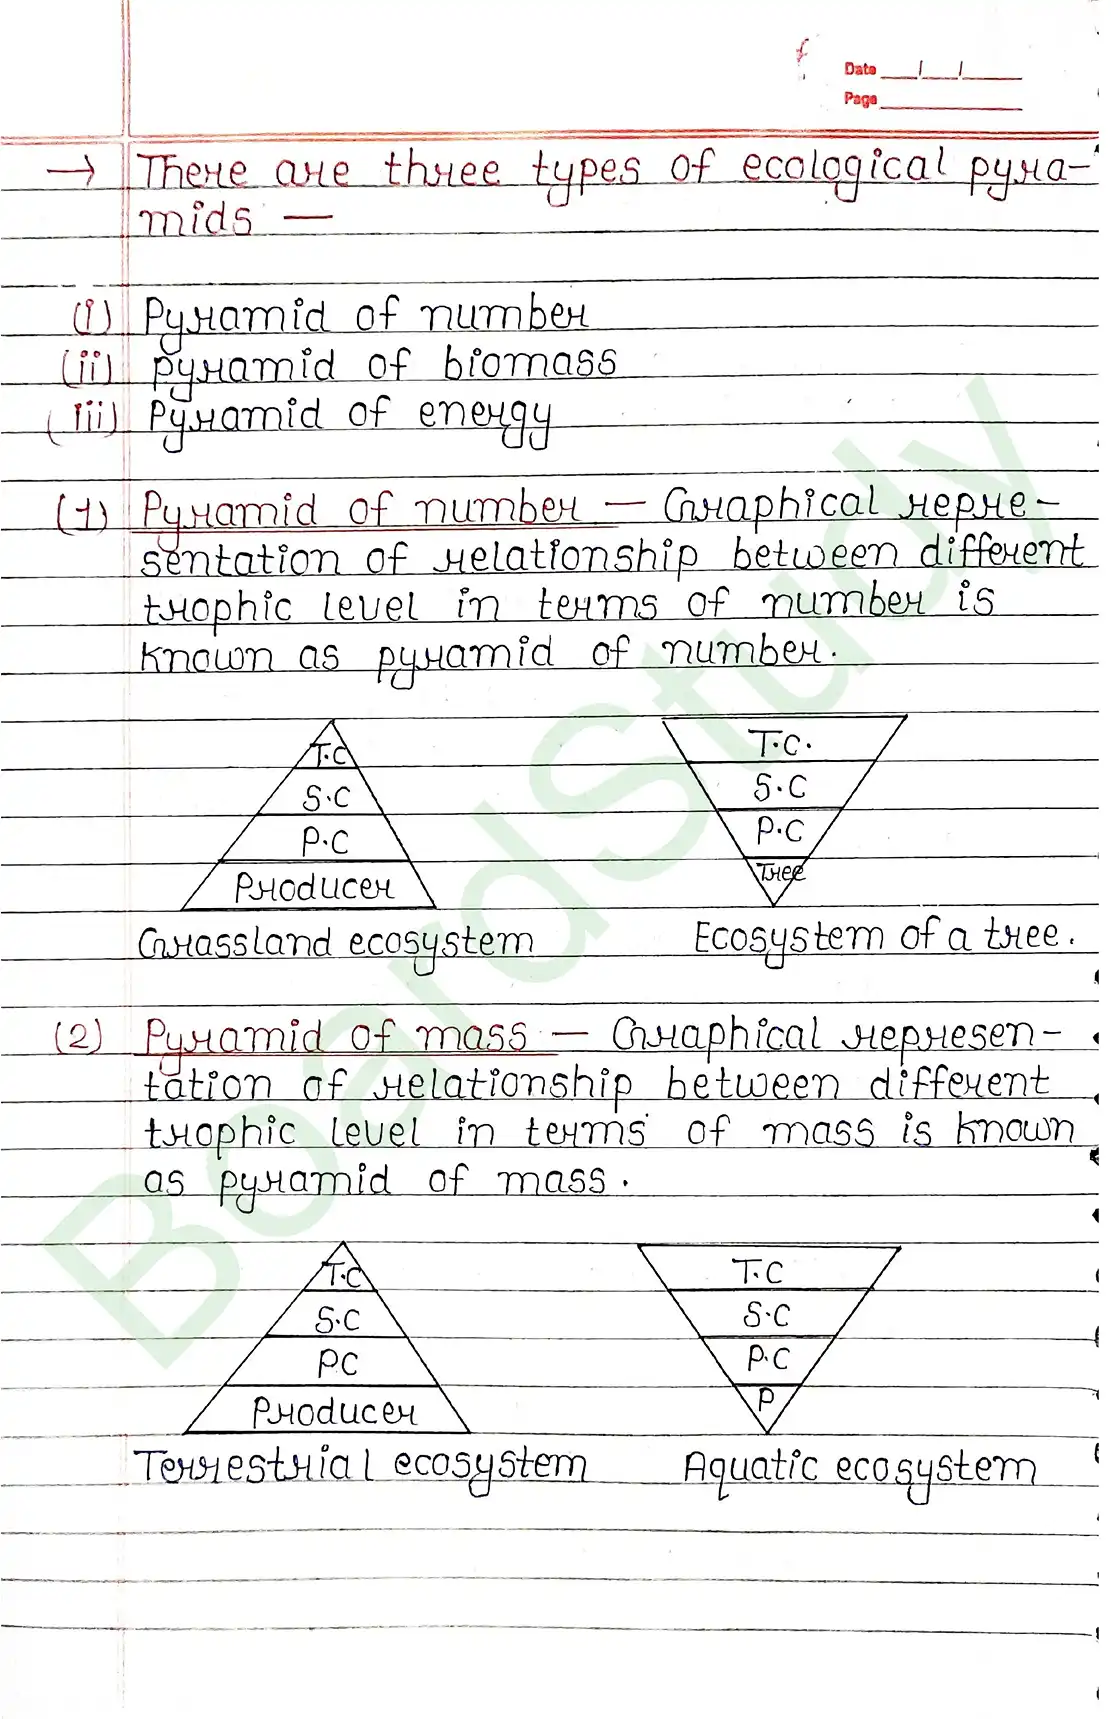 Date __/__/____
Page ________
→ There are three types of ecological pyra-
mids —
(i) Pyramid of number
(ii) pyramid of biomass
(iii) Pyramid of energy
(1) Pyramid of number — Graphical repre-
sentation of relationship between different
trophic level in terms of number is
known as pyramid of number.
T.C
S.C
P.C
Producer
Grassland ecosystem
T.C.
S.C
P.C
Tree
Ecosystem of a tree.
(2) Pyramid of mass — Graphical represen-
tation of relationship between different
trophic level in terms of mass is known
as pyramid of mass.
T.C
S.C
PC
Producer
Terrestrial ecosystem
T.C
S.C
P.C
P
Aquatic ecosystem
BoardStudy